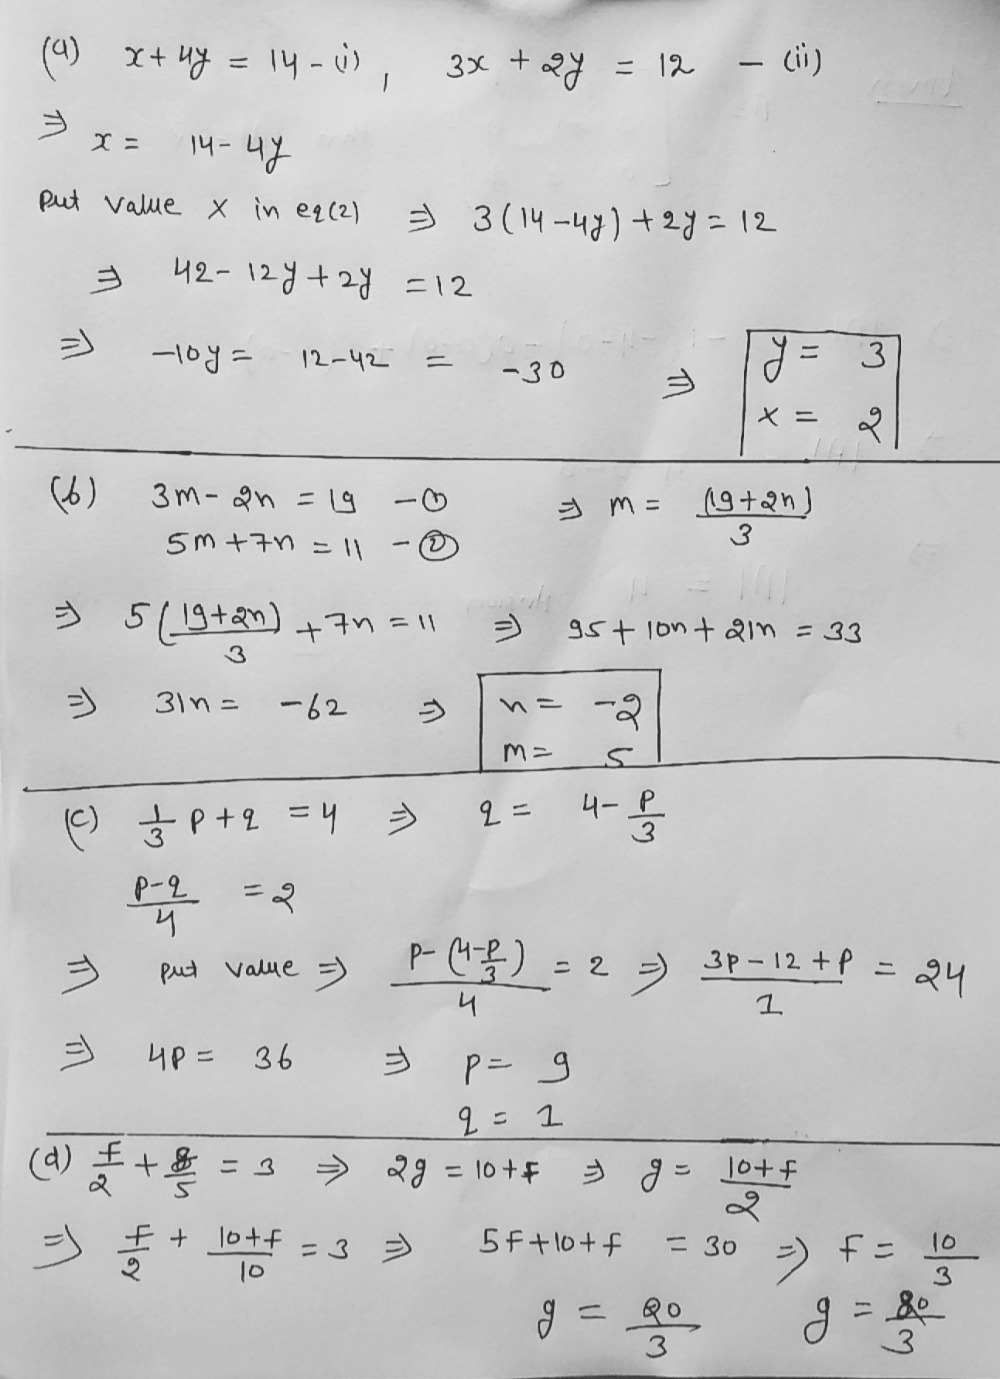 (a) x + 4y = 14 - (i) , 3x + 2y = 12 - (ii)
⇒ x = 14 - 4y
Put value x in eq(2) ⇒ 3(14 - 4y) + 2y = 12
⇒ 42 - 12y + 2y = 12
⇒ -10y = 12 - 42 = -30 ⇒ y = 3
x = 2
(b) 3m - 2n = 19 - ① ⇒ m = (19 + 2n)/3
5m + 7n = 11 - ②
⇒ 5(19 + 2n)/3 + 7n = 11 ⇒ 95 + 10n + 21n = 33
⇒ 31n = -62 ⇒ n = -2
m = 5
(c) 1/3 p + q = 4 ⇒ q = 4 - p/3
(p - q)/4 = 2
⇒ put value ⇒ (p - (4 - p/3))/4 = 2 ⇒ (3p - 12 + p)/1 = 24
⇒ 4p = 36 ⇒ p = 9
q = 1
(d) f/2 + g/5 = 3 ⇒ 2g = 10 + f ⇒ g = (10 + f)/2
⇒ f/2 + (10 + f)/10 = 3 ⇒ 5f + 10 + f = 30 ⇒ f = 10/3
g = 20/3 g = 20/3